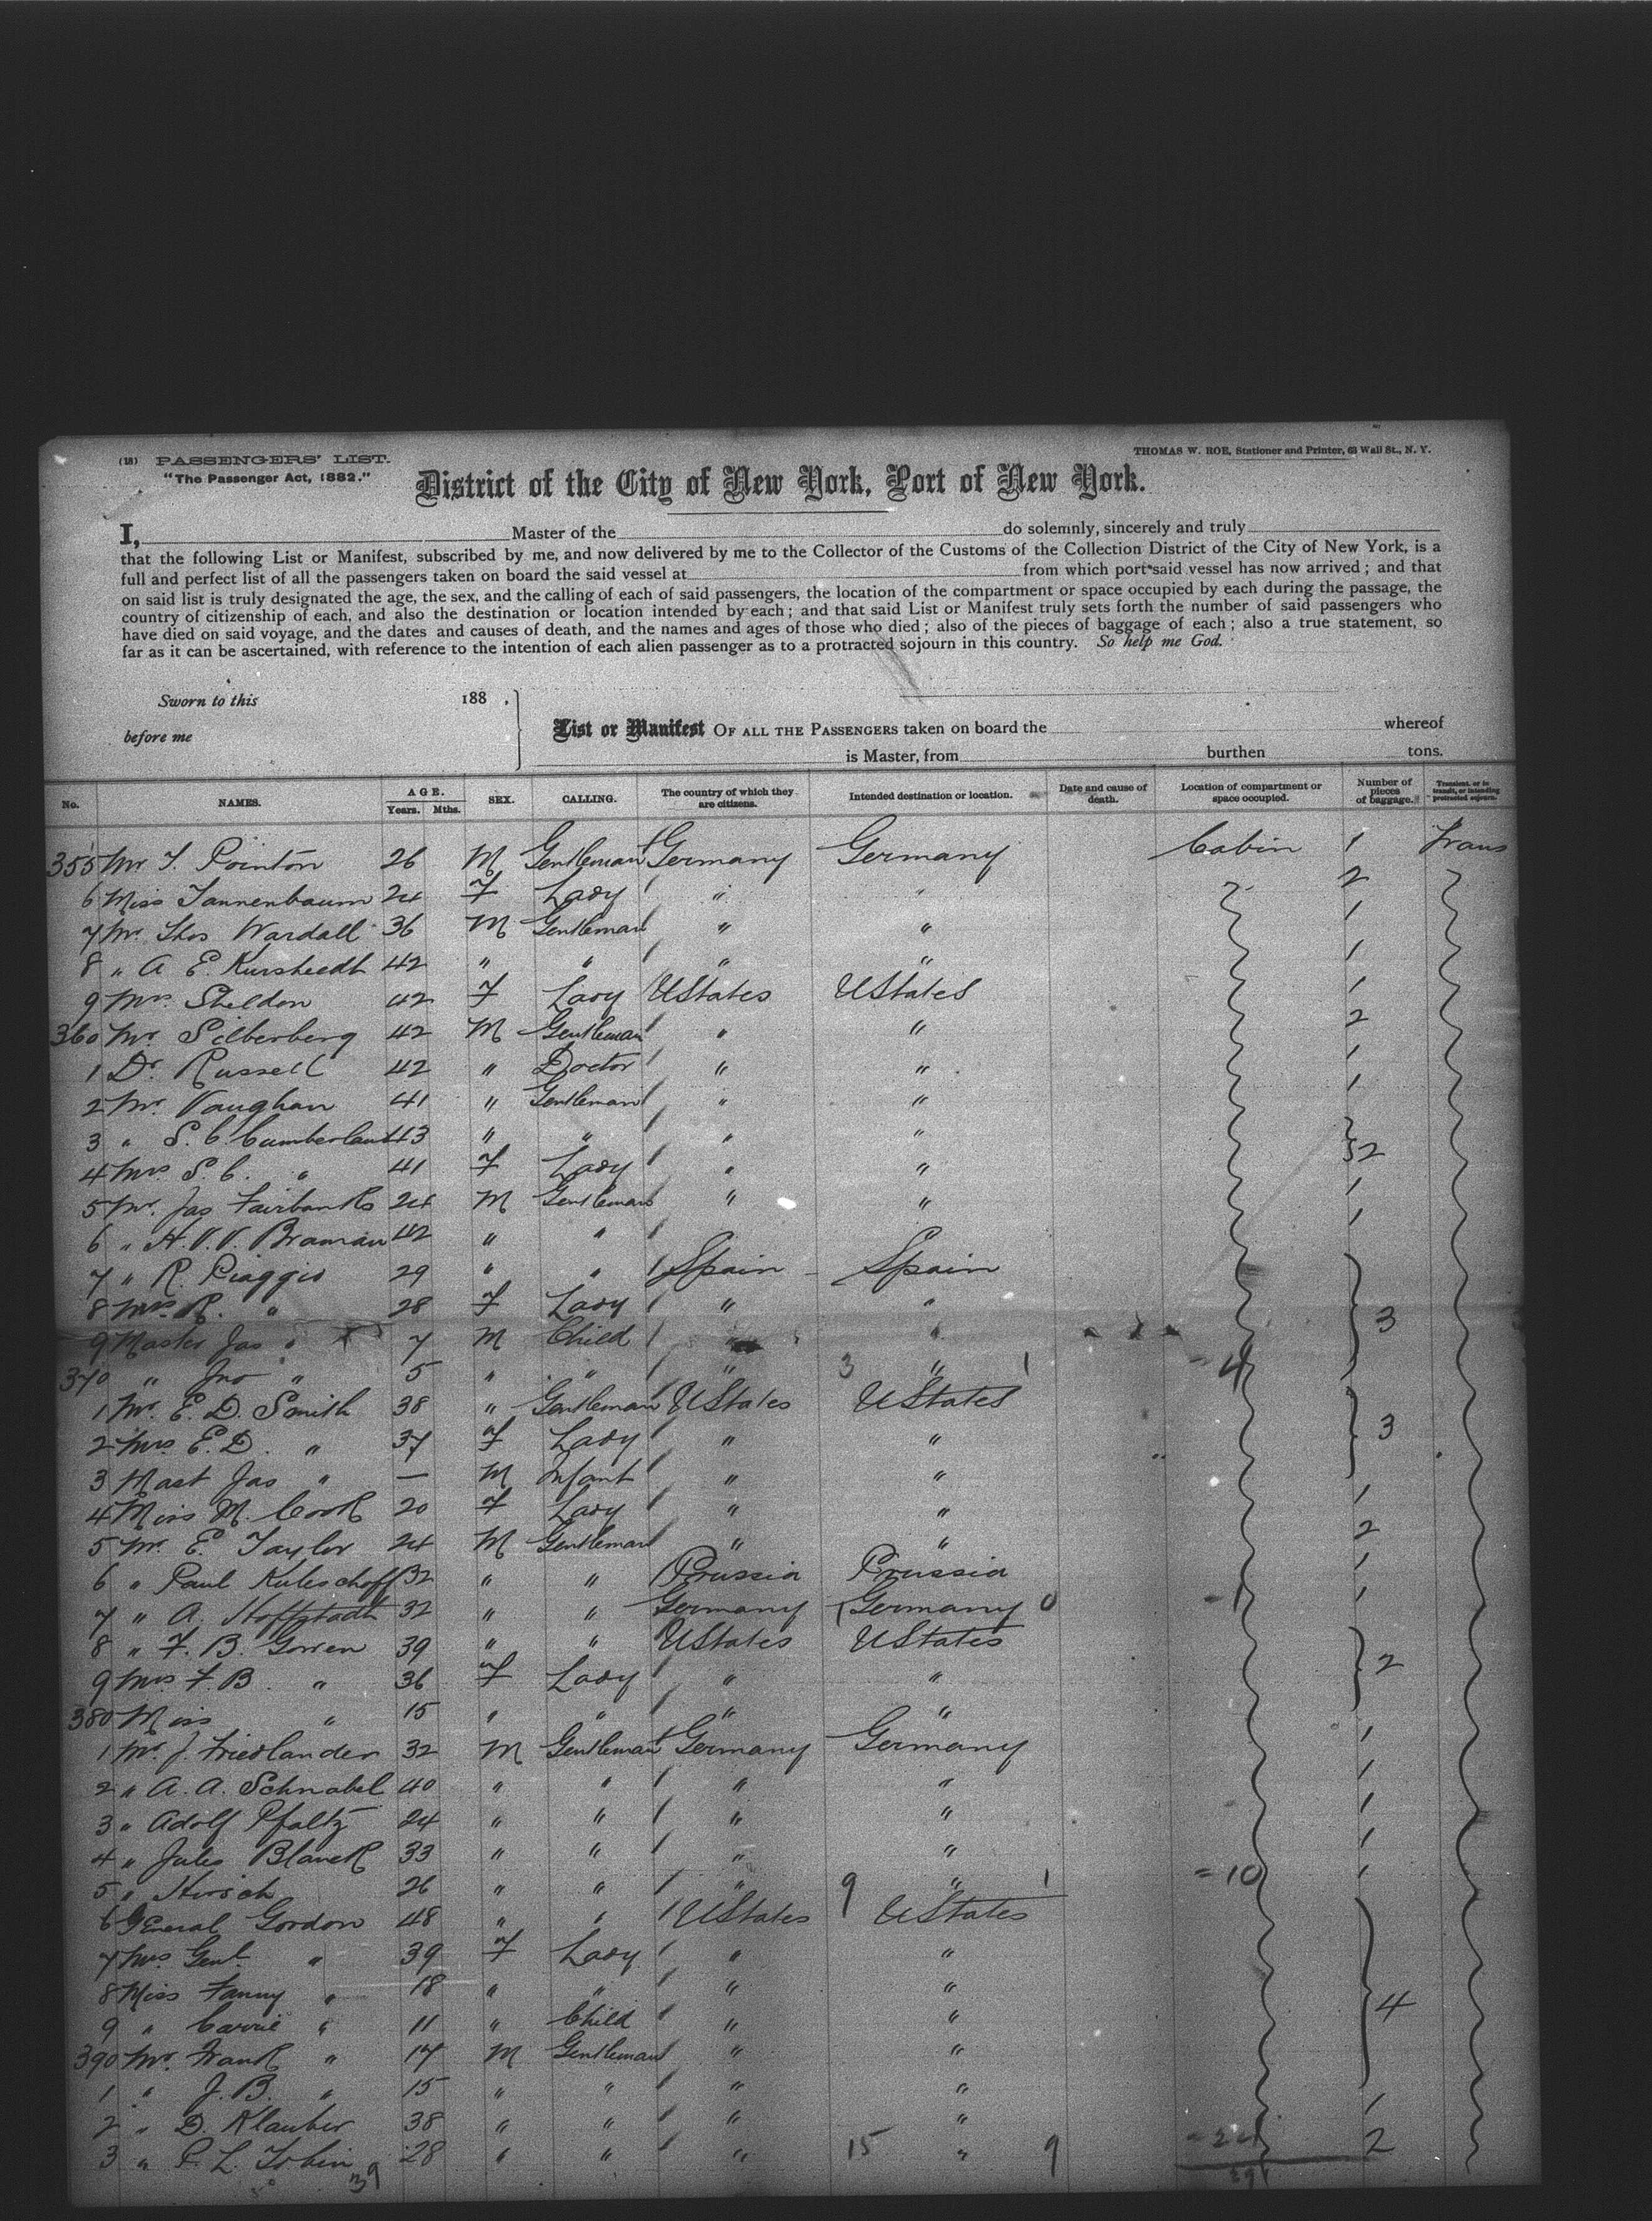 (18) PASSENGERS' LIST.
"The Passenger Act, 1882."
THOMAS W. ROE, Stationer and Printer, 63 Wall St., N. Y.
District of the City of New York, Port of New York.
I, Master of the do solemnly, sincerely and truly
that the following List or Manifest, subscribed by me, and now delivered by me to the Collector of the Customs of the Collection District of the City of New York, is a
full and perfect list of all the passengers taken on board the said vessel at from which port said vessel has now arrived; and that
on said list is truly designated the age, the sex, and the calling of each of said passengers, the location of the compartment or space occupied by each during the passage, the
country of citizenship of each, and also the destination or location intended by each; and that said List or Manifest truly sets forth the number of said passengers who
have died on said voyage, and the dates and causes of death, and the names and ages of those who died; also of the pieces of baggage of each; also a true statement, so
far as it can be ascertained, with reference to the intention of each alien passenger as to a protracted sojourn in this country. So help me God.
Sworn to this 188 .
before me
List or Manifest OF ALL THE PASSENGERS taken on board the whereof
is Master, from burthen tons.
No. NAMES. AGE. Years. Mths. SEX. CALLING. The country of which they are citizens. Intended destination or location. Date and cause of death. Location of compartment or space occupied. Number of pieces of baggage. Transient, or in transit, or intending protracted sojourn.
355 Mr T. Pointon 26 M Gentleman Germany Germany Cabin 1 Trans
6 Miss Tannenbaum 24 F Lady " " 2
7 Mr. Thos Wardall 36 M Gentleman " " 1
8 " A E. Kursheedt 42 " " " " 1
9 Mrs. Sheldon 42 F Lady UStates UStates 1
360 Mr. Silberberg 42 M Gentleman " " 2
1 Dr. Russell 42 " Doctor " " 1
2 Mr. Vaughan 41 " Gentleman " " 1
3 " S. C. Cumberland 43 " " " "
4 Mrs. S. C. " 41 F Lady " " 2
5 Mr. Jas Fairbanks 24 M Gentleman " " 1
6 " H. V. V. Braman 42 " " 1
7 " R. Piaggio 29 " " Spain Spain
8 Mrs. R. " 28 F Lady " " 3
9 Master Jas " 7 M Child " "
370 " Jno " 5 " " " 3 " 1 = 4
1 Mr. E. D. Smith 38 " Gentleman UStates UStates
2 Mrs E. D. " 37 F Lady " " 3
3 Mast Jas " — M Infant " "
4 Miss M. Cook 20 F Lady " " 1
5 Mr. E. Taylor 24 M Gentleman " " 2
6 " Paul Kuleschoff 32 " " Prussia Prussia 1
7 " A. Hoffstadt 32 " " Germany 1 Germany 0 - 1 1
8 " F. B. Gowen 39 " " UStates UStates
9 Mrs F. B. " 36 F Lady " " 2
380 Miss " 15 " " " "
1 Mr. J. Friedlander 32 M Gentleman Germany Germany 1
2 " A. A. Schnabel 40 " " " " 1
3 " Adolf Pfaltz 24 " " " " 1
4 " Jules Blanck 33 " " " " 1
5 " Hirsch 26 " " " 9 " 1 = 10 1
6 General Gordon 48 " " UStates UStates
7 Mrs Genl. " 39 F Lady " "
8 Miss Fanny " 18 " " " "
9 " Carrie " 11 " Child " " 4
390 Mr. Frank " 17 M Gentleman " "
1 " J. B. " 15 " " " "
2 " D. Klauber 38 " " " " 1
3 " P. L. Tobin 28 " " " 15 " 9 = 24 2
39 39